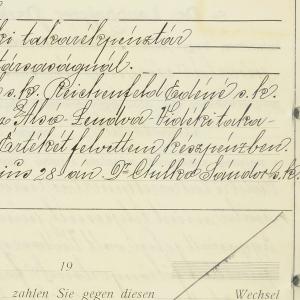 ki takarékpénztár
társaságnál.
s.k. Reichenfeld Edéné s.k.
Alsó-Lendva-Vidéki taka-
Értékét felvettem készpénzben.
ius 28 án. Dr Chilkó Sándor s.k.
19
zahlen Sie gegen diesen Wechsel